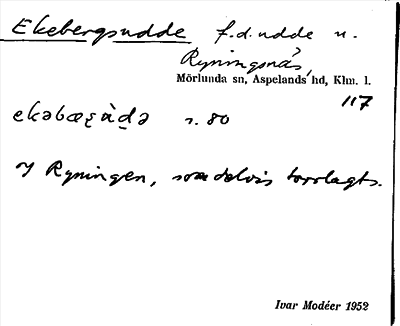 Ekebergsudde f.d. udde u.
Ryningsnäs,
Mörlunda sn, Aspelands hd, Klm. l.
117
s. 80
I Ryningen, som delvis torrlagts.
Ivar Modéer 1952